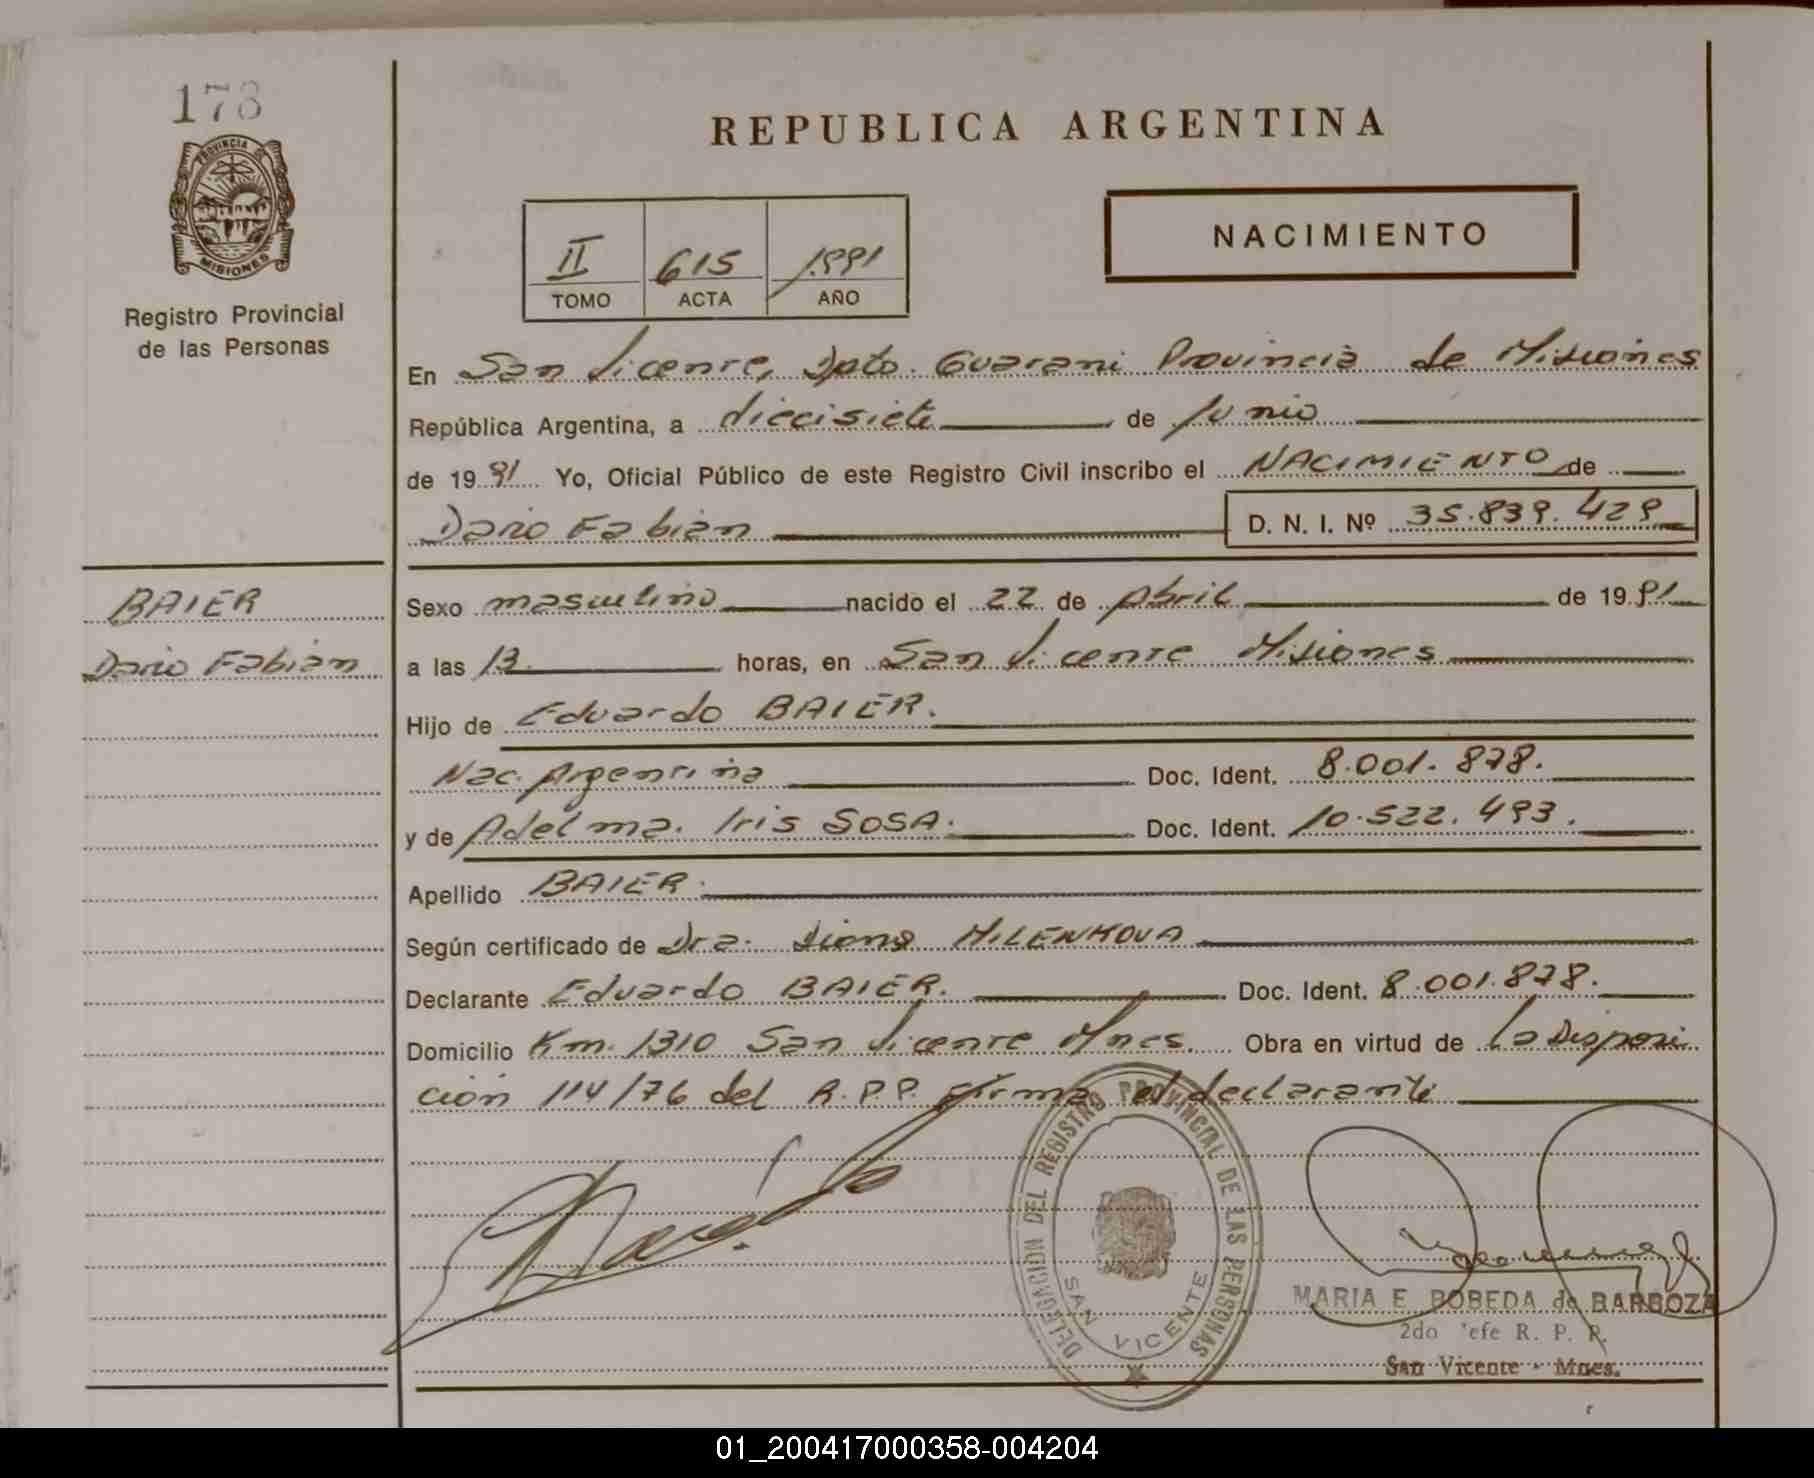 178
REPUBLICA ARGENTINA
PROVINCIA DE
MISIONES
Registro Provincial
de las Personas
NACIMIENTO
II 615 1991
TOMO ACTA AÑO
En San Vicente, Dpto. Guarani Provincia de Misiones
República Argentina, a diecisiete de Junio
de 1991 Yo, Oficial Público de este Registro Civil inscribo el NACIMIENTO de
Dario Fabián D. N. I. Nº 35.839.429
BAIER
Dario Fabián
Sexo masculino nacido el 22 de Abril de 1991
a las 13 horas, en San Vicente Misiones
Hijo de Eduardo BAIER.
Nac. Argentina Doc. Ident. 8.001.878.
y de Adelma. Iris SOSA. Doc. Ident. 10.522.493.
Apellido BAIER.
Según certificado de Dra. MILENKOVA
Declarante Eduardo BAIER. Doc. Ident. 8.001.878.
Domicilio Km. 1310 San Vicente Mnes. Obra en virtud de la Disposi
ción 114/76 del R.P.P. firma el declarante
DELEGACION DEL REGISTRO PROVINCIAL DE LAS PERSONAS
SAN VICENTE
MARIA E. BOBEDA de BARBOZA
2do Jefe R. P. P.
San Vicente - Mnes.
01_200417000358-004204